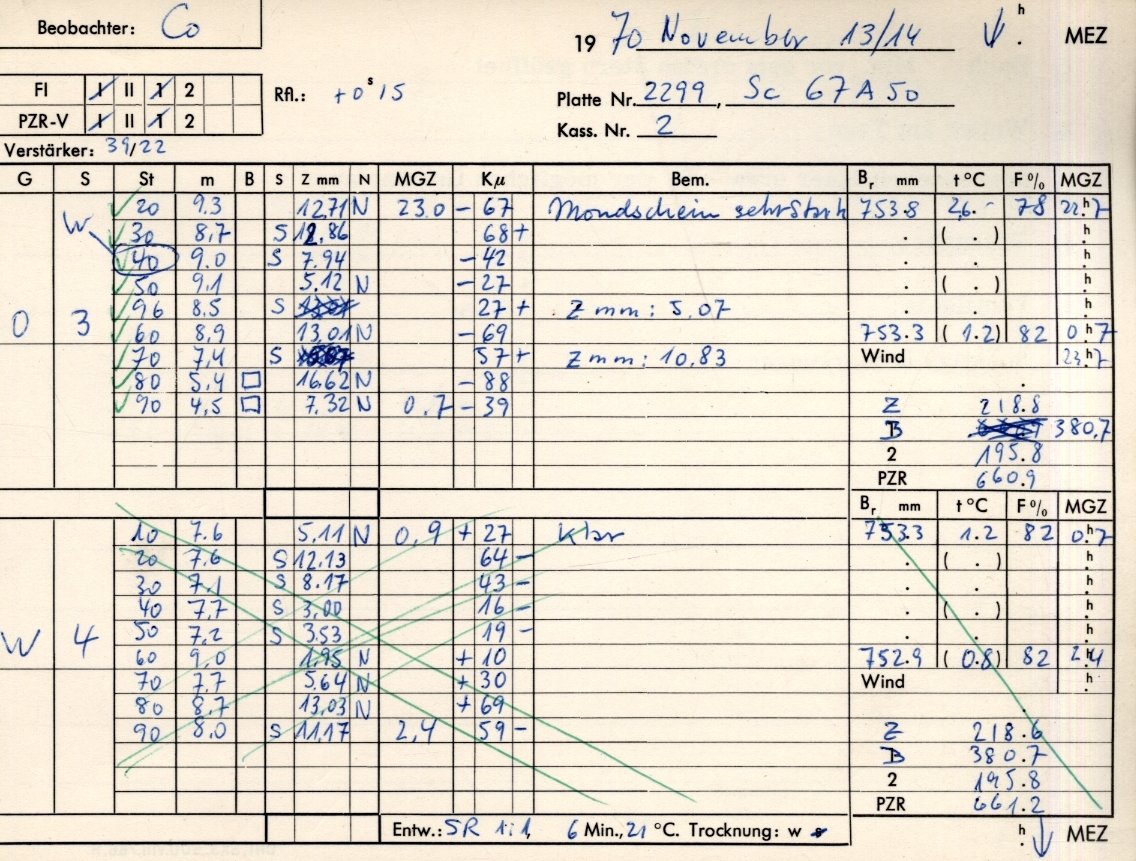 Beobachter: Co
19 70 November 13/14 ↓ h . MEZ
FI I II 1 2
Rfl.: +0 s 15
Platte Nr. 2299, Sc 67 A 50
PZR-V I II 1 2
Kass. Nr. 2
Verstärker: 39/22
G S St m B S Z mm N MGZ Kμ Bem. Br mm t °C F % MGZ
W 20 9.3 12.71 N 23.0 - 67 Mondschein sehr stark 753.8 2.6 78 22.h7
30 8.7 S 12.86 68 + . ( . ) h
40 9.0 S 7.94 - 42 . . h
50 9.1 5.12 N - 27 . ( . ) h
96 8.5 S 27 + Z mm: 5.07 . . h
O 3 60 8.9 13.01 N - 69 753.3 ( 1.2 ) 82 0.h7
70 7.4 S 57 + Z mm: 10.83 Wind 23.h7
80 5.4 □ 16.62 N - 88 .
90 4.5 □ 7.32 N 0.7 - 39 Z 218.8
B 380.7
2 195.8
PZR 660.9
Br mm t °C F % MGZ
10 7.6 5.11 N 0.9 + 27 klar 753.3 1.2 82 0.h7
20 7.6 S 12.13 64 - . ( . ) h
30 7.1 S 8.17 43 - . . h
40 7.7 S 3.00 16 - . ( . ) h
W 4 50 7.2 S 3.53 19 - . . h
60 9.0 1.95 N + 10 752.9 ( 0.8 ) 82 2.h4
70 7.7 5.64 N + 30 Wind h
80 8.7 13.03 N + 69 .
90 8.0 S 11.17 2.4 59 - Z 218.6
B 380.7
2 195.8
PZR 661.2
Entw.: SR 1:1, 6 Min., 21 °C. Trocknung: w s h . ↓ MEZ